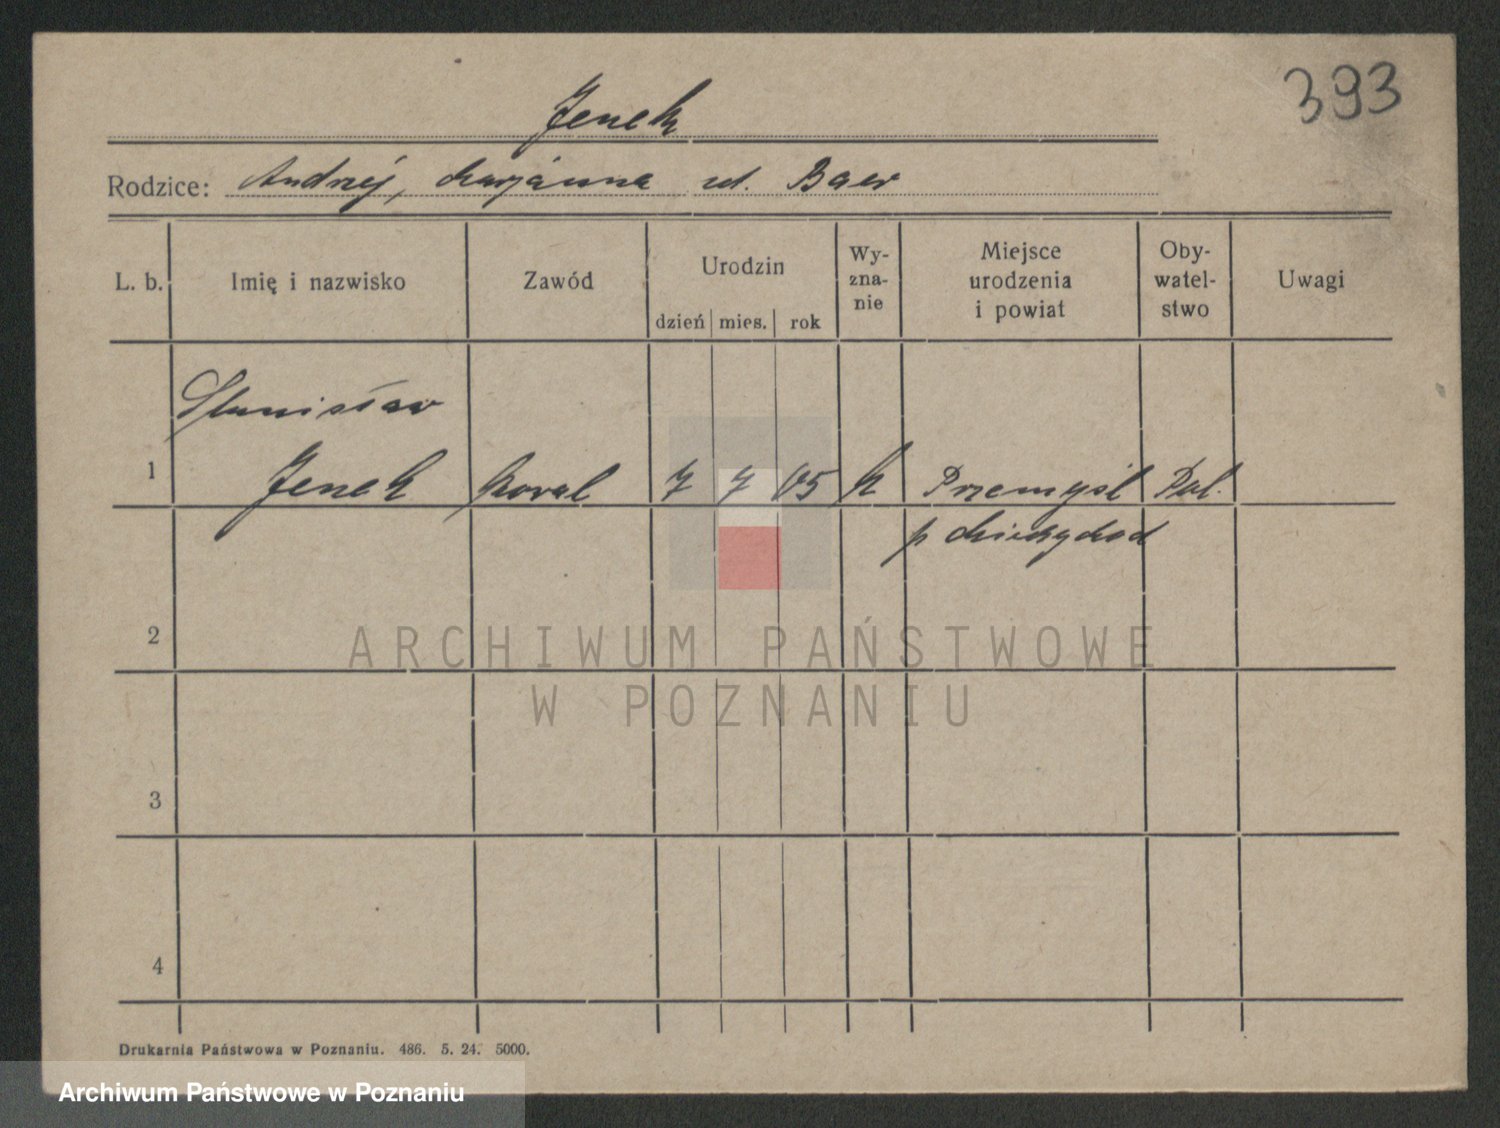 393
Jenek
Rodzice: Andrzej, Marjanna zd. Baer
L. b. Imię i nazwisko Zawód Urodzin dzień mies. rok Wy-zna-nie Miejsce urodzenia i powiat Oby-watel-stwo Uwagi
Stanisław
1 Jenek kowal 7 7 05 k Przemyśl Pol.
p
2
3
4
ARCHIWUM PAŃSTWOWE
W POZNANIU
Drukarnia Państwowa w Poznaniu. 486. 5. 24. 5000.
Archiwum Państwowe w Poznaniu